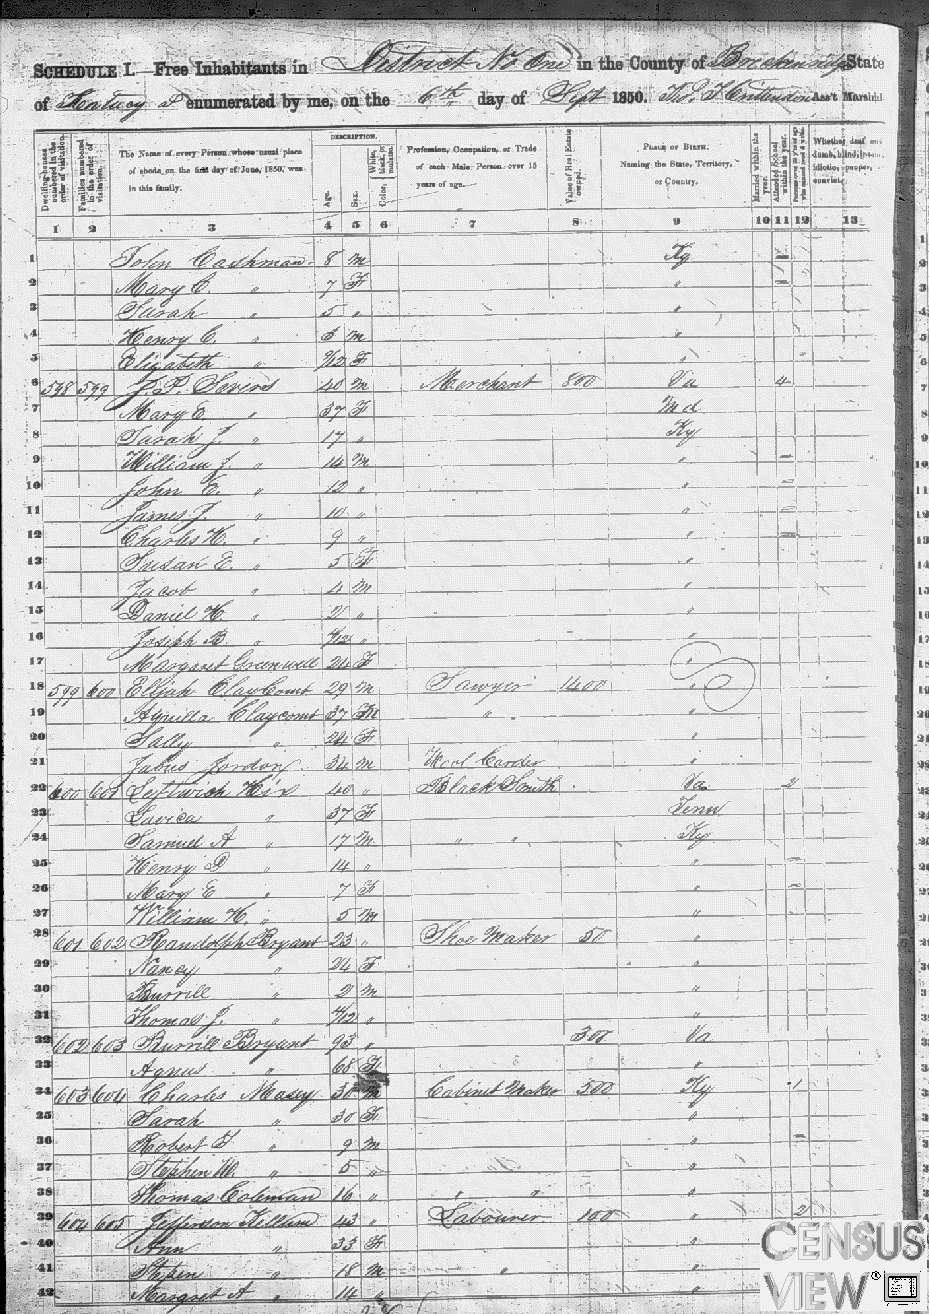 SCHEDULE I.—Free Inhabitants in District No One in the County of Breckenridge State
of Kentucy enumerated by me, on the 6th day of Sept 1850. Ass't Marshal
Dwelling-houses numbered in the order of visitation.
Families numbered in the order of visitation.
The Name of every Person whose usual place of abode on the first day of June, 1850, was in this family.
DESCRIPTION.
Age.
Sex.
Color, White, black, or mulatto.
Profession, Occupation, or Trade of each Male Person over 15 years of age.
Value of Real Estate owned.
PLACE OF BIRTH. Naming the State, Territory, or Country.
Married within the year.
Attended School within the year.
Whether deaf and dumb, blind, insane, idiotic, pauper, or convict.
1 2 3 4 5 6 7 8 9 10 11 12 13
1 John Cashman 8 m Ky
2 Mary C. " 7 F "
3 Sarah " 5 " "
4 Henry C. " 3 m "
5 Elizabeth " /12 F "
6 598 599 J. P. 40 m Merchant 800 Va 4
7 Mary E. " 37 F Md
8 Sarah J. " 17 " Ky
9 William J. " 14 m "
10 John E. " 12 " "
11 James J. " 10 " "
12 Charles H. " 9 " "
13 Susan E. " 5 F "
14 Jacob " 4 m "
15 Daniel H. " 2 " "
16 Joseph B. " /12 " "
17 Margaret Greenwell 24 F "
18 599 600 Elijah Claycomb 29 m Sawyer 1400 "
19 Aquilla Claycomb 37 m " "
20 Sally " 24 F "
21 Jabus Jordon 34 m Wool Carder "
22 600 601 Leftwich Hix 40 " Black Smith Va 2
23 Lavica " 37 F Tenn
24 Samuel A " 17 m " " Ky
25 Henry D " 14 " "
26 Mary E " 7 F "
27 William H. " 5 m "
28 601 602 Randolph Bryant 23 " Shoe Maker 50 "
29 Nancy " 24 F "
30 Burrill " 2 m "
31 Thomas J. " /12 " "
32 602 603 Burrill Bryant 93 " 300 Va
33 Agnus " 68 F "
34 603 604 Charles Masey 30 m Cabinet Maker 500 Ky 1
35 Sarah " 30 F "
36 Robert " 9 m "
37 Stephen W. " 5 " "
38 Thomas Coleman 16 " " " "
39 604 605 Jefferson Kellum 43 " Labourer 100 " 2
40 Ann " 33 F "
41 Stephen " 18 m " "
42 Margret A " 14 " "
CENSUS
VIEW®